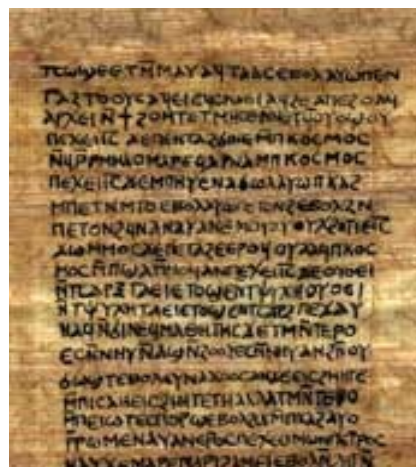 ⲧⲥⲱϣⲉ ⲉⲧⲙ̄ⲙⲁⲩ ⲁϥⲧⲁⲁⲥ ⲉⲃⲟⲗ ⲁⲩⲱ ⲡⲉⲛ
ⲧⲁϩⲧⲟⲟⲩⲥ ⲁϥⲉⲓ ⲉϥⲥⲕⲁⲉⲓ ⲁϥϩⲉ ⲁⲡⲉϩⲟ ⲁϥ
ⲁⲣⲭⲉⲓ ⲛ̄ϯ ϩⲟⲙⲧ ⲉⲧⲙⲏⲥⲉ
ⲡⲉϫⲉ ⲓ̄ⲥ̄ ϫⲉ ⲡⲉⲛⲧⲁϩϭⲓⲛⲉ ⲙ̄ⲡⲕⲟⲥⲙⲟⲥ
ⲛ̄ϥⲣ̄ ⲣⲙ̄ⲙⲁⲟ ⲙⲁⲣⲉϥⲁⲣⲛⲁ ⲙ̄ⲡⲕⲟⲥⲙⲟⲥ
ⲡⲉϫⲉ ⲓ̄ⲥ̄ ϫⲉ ⲙ̄ⲡⲏⲩⲉ ⲛⲁϭⲱⲗ ⲁⲩⲱ ⲡⲕⲁϩ
ⲙ̄ⲡⲉⲧⲛ̄ⲙ̄ⲧⲟ ⲉⲃⲟⲗ ⲁⲩⲱ ⲡⲉⲧⲟⲛϩ ⲉⲃⲟⲗ ϩⲛ̄
ⲡⲉⲧⲟⲛϩ ϥⲛⲁⲛⲁⲩ ⲁⲛ ⲉⲙⲟⲩ
ϫⲱ ⲙ̄ⲙⲟⲥ ϫⲉ ⲡⲉⲧⲁϩⲉ ⲉⲣⲟϥ ⲟⲩⲁⲁϥ ⲡⲕⲟⲥ
ⲙⲟⲥ ⲙ̄ⲡϣⲁ ⲙ̄ⲙⲟϥ ⲁⲛ ⲡⲉϫⲉ ⲓ̄ⲥ̄ ϫⲉ ⲟⲩⲟⲉⲓ
ⲛ̄ⲧⲥⲁⲣⲝ ⲧⲁⲉⲓ ⲉⲧⲟϣⲉ ⲛ̄ⲧⲯⲩⲭⲏ ⲟⲩⲟⲉⲓ
ⲛ̄ⲧⲯⲩⲭⲏ ⲧⲁⲉⲓ ⲉⲧⲟϣⲉ ⲛ̄ⲧⲥⲁⲣⲝ ⲡⲉϫⲁⲩ
ⲛⲁϥ ⲛ̄ϭⲓ ⲛⲉϥⲙⲁⲑⲏⲧⲏⲥ ϫⲉ ⲧⲙⲛ̄ⲧⲉⲣⲟ
ⲉⲥⲛ̄ⲛⲏⲩ ⲛ̄ⲁϣ ⲛ̄ϩⲟⲟⲩ ⲉⲥⲛ̄ⲛⲏⲩ ⲁⲛ ϩⲛ̄ ⲟⲩ
ϭⲱϣⲧ ⲉⲃⲟⲗ ⲉⲩⲛⲁϫⲟⲟⲥ ⲁⲛ ϫⲉ ⲉⲓⲥϩⲏⲏⲧⲉ
ⲙ̄ⲡⲓⲥⲁ ⲏ ⲉⲓⲥϩⲏⲏⲧⲉ ⲧⲏ ⲁⲗⲗⲁ ⲧⲙⲛ̄ⲧⲉⲣⲟ
ⲙ̄ⲡⲉⲓⲱⲧ ⲉⲥⲡⲟⲣϣ ⲉⲃⲟⲗ ϩⲓϫⲙ̄ ⲡⲕⲁϩ ⲁⲩⲱ
ⲣ̄ⲣⲱⲙⲉ ⲛⲁⲩ ⲁⲛ ⲉⲣⲟⲥ ⲡⲉϫⲉ ⲥⲓⲙⲱⲛ ⲡⲉⲧⲣⲟⲥ